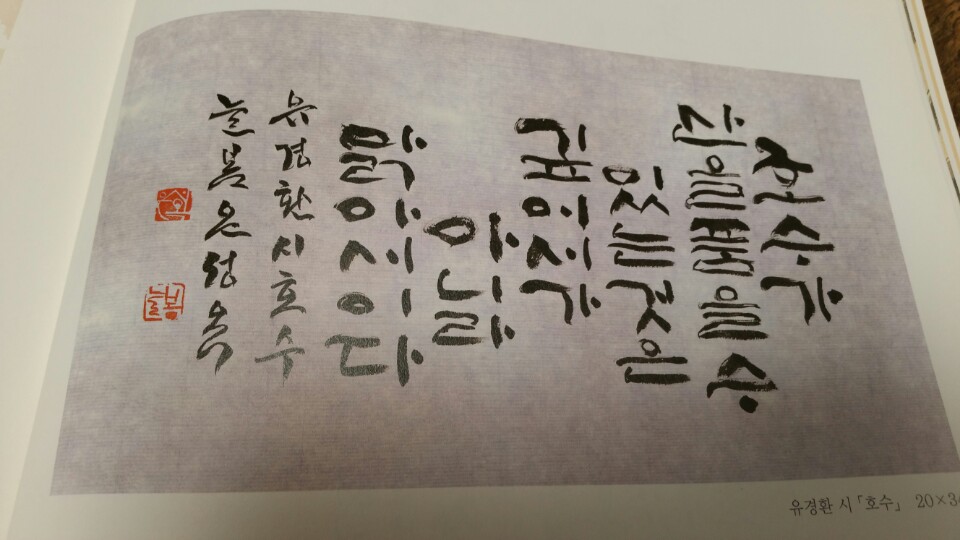 호수가
산을 품을 수
있는 것은
깊어서가
아니라
맑아서이다
유경환 시 호수
늘봄
늘봄
유경환 시 「호수」 20×34